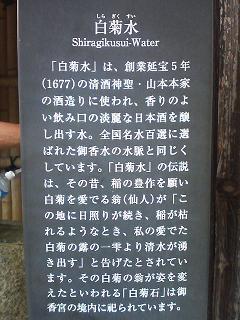 しらぎくすい
白菊水
Shiragikusui-Water
「白菊水」は、創業延宝５年
(1677)の清酒神聖・山本本家
の酒造りに使われ、香りのよ
い飲み口の淡麗な日本酒を醸
し出す水。全国名水百選に選
ばれた御香水の水脈と同じく
しています。「白菊水」の伝説
は、その昔、稲の豊作を願い
白菊を愛でる翁(仙人)が「こ
の地に日照りが続き、稲が枯
れるようなとき、私の愛でた
白菊の露の一雫より清水が湧
き出す」と告げたとされてい
ます。その白菊の翁が姿を変
えたといわれる「白菊石」は御
香宮の境内に祀られています。